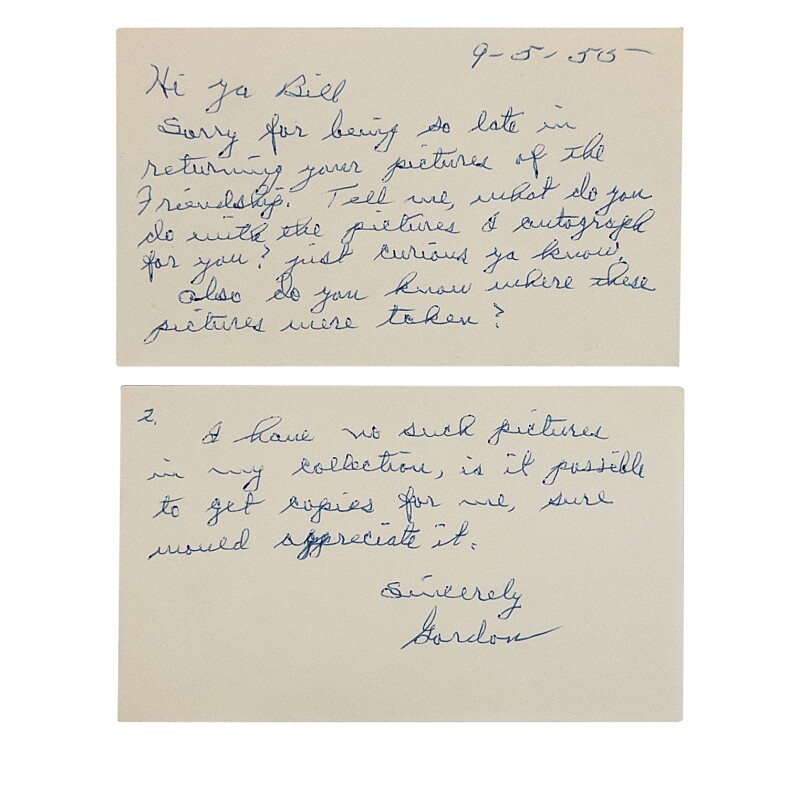 9-5-55
Hi ya Bill
Sorry for being so late in
returning your pictures of the
Friendship. Tell me, what do you
do with the pictures I autograph
for you? just curious ya know.
also do you know where these
pictures were taken?
2.
I have no such pictures
in my collection, is it possible
to get copies for me, sure
would appreciate it.
Sincerely
Gordon